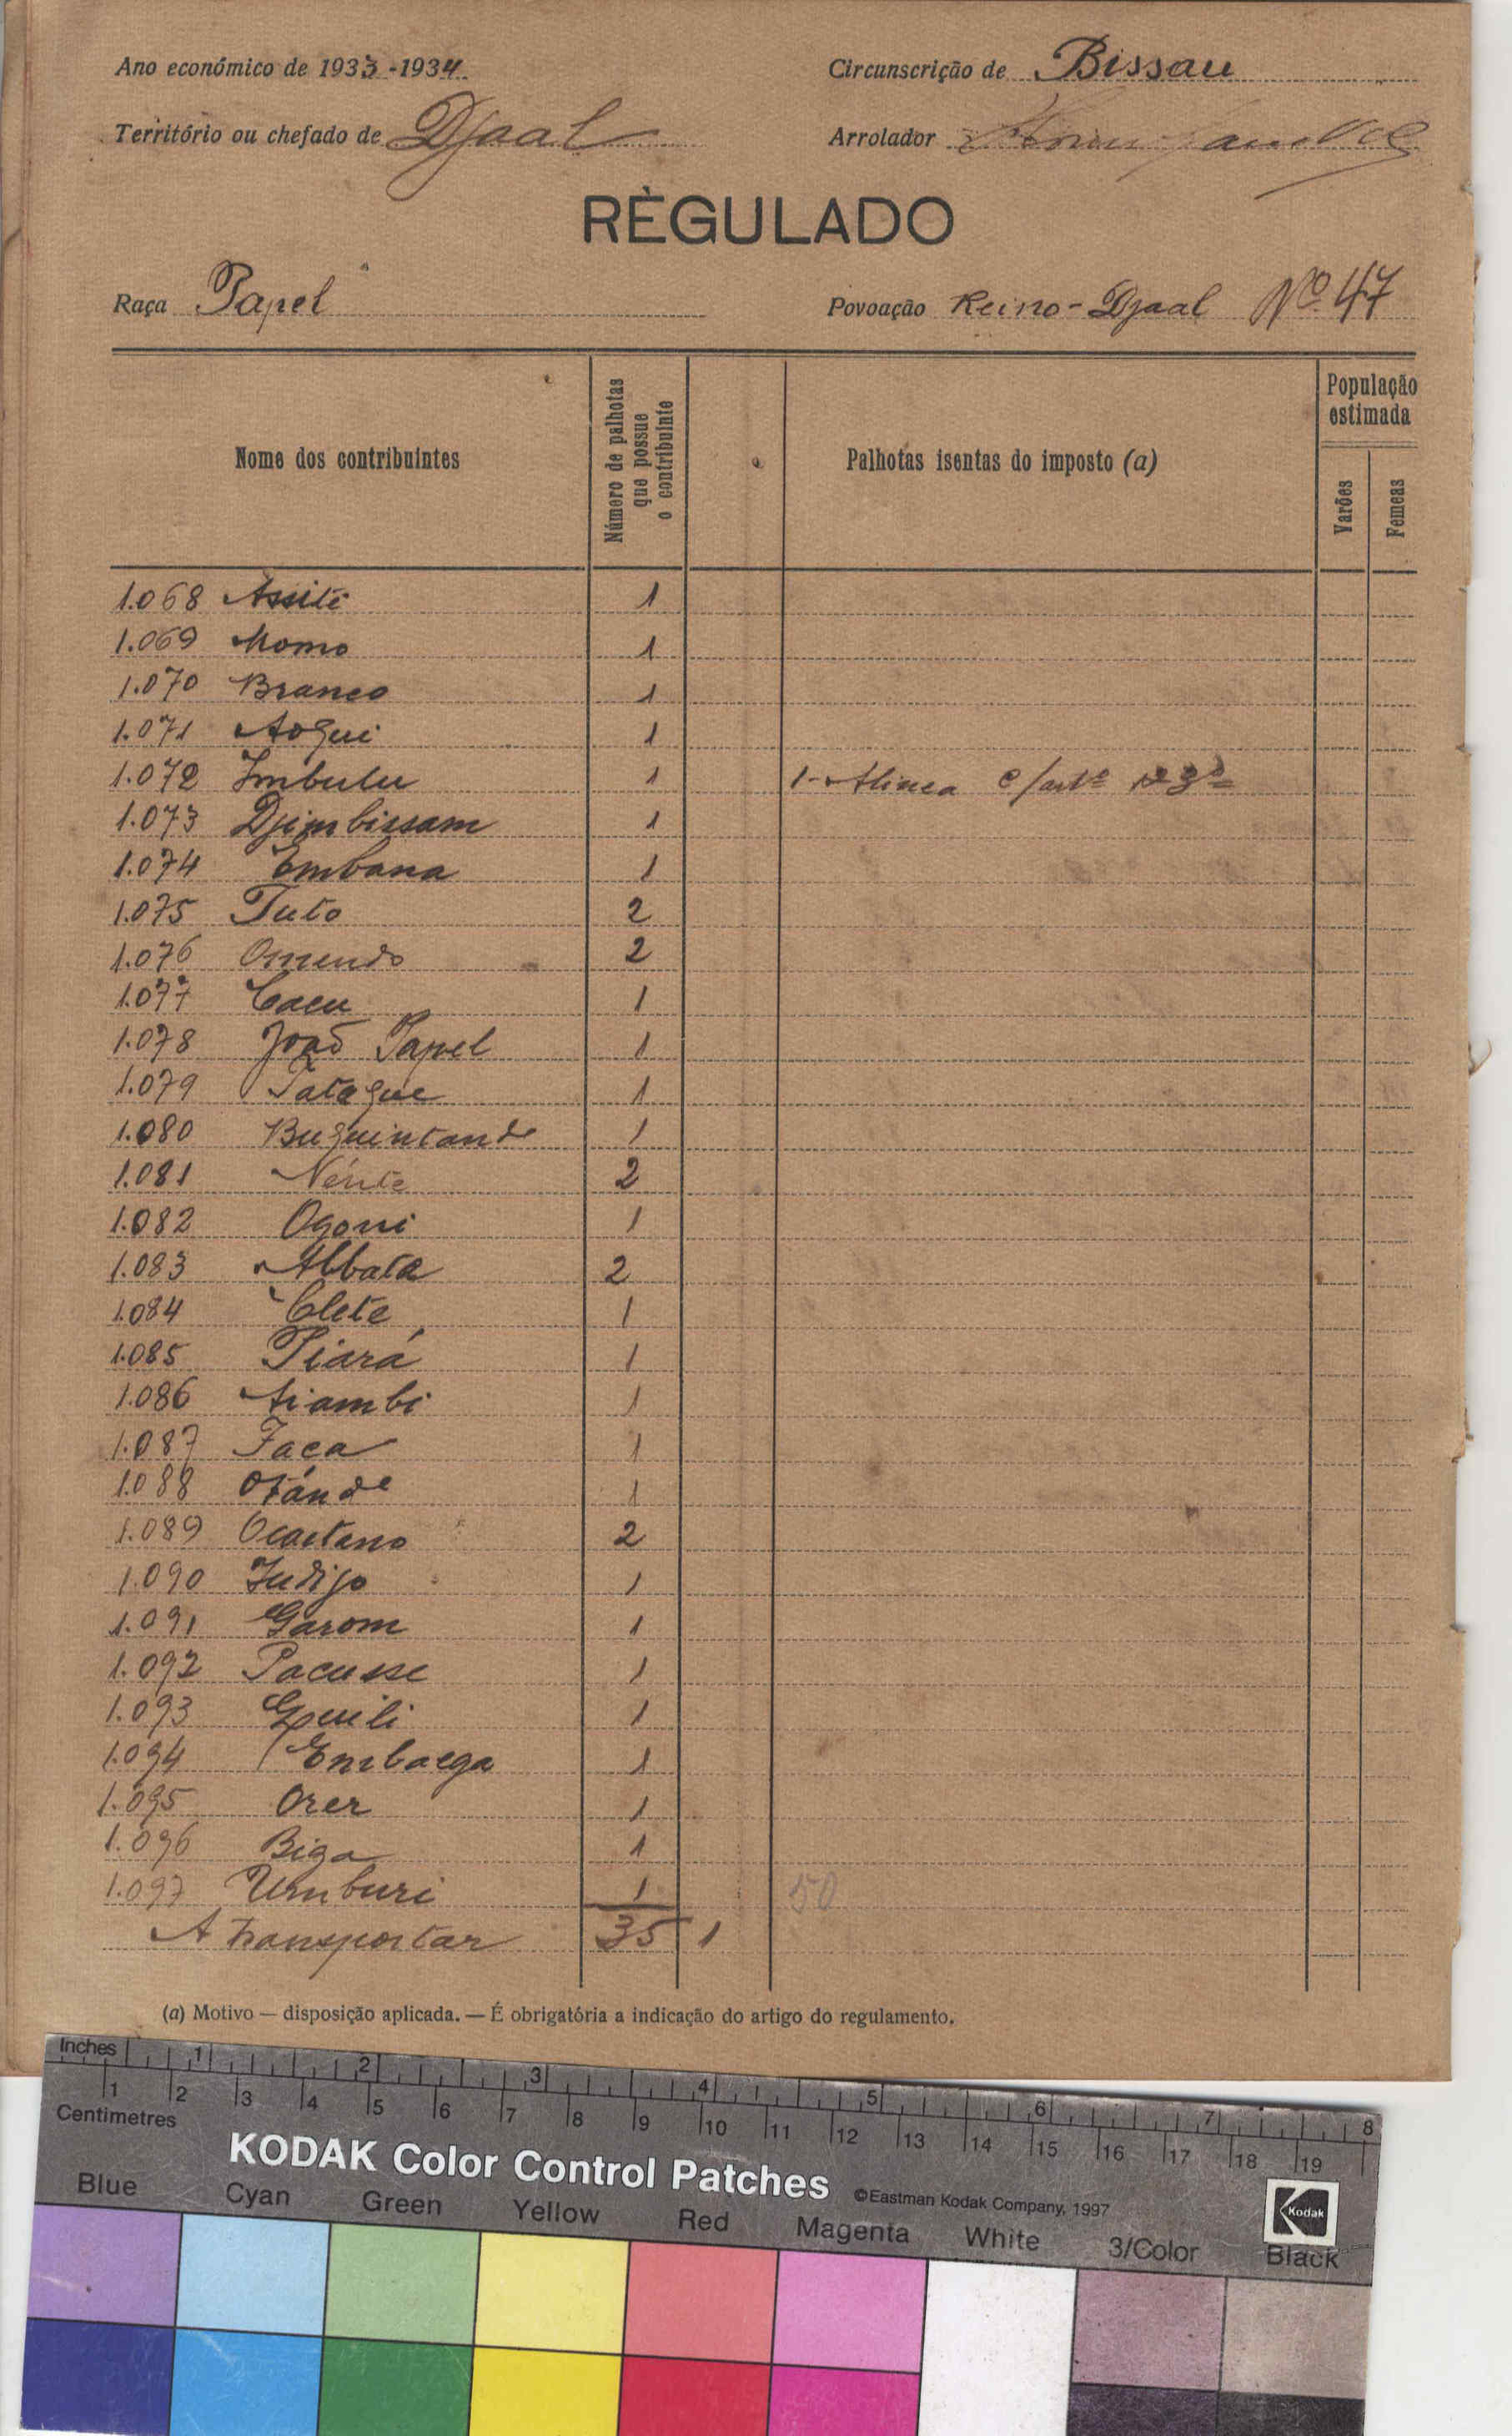 Ano económico de 1933-1934
Circunscrição de Bissau
Território ou chefado de Djaal
Arrolador
RÈGULADO
Raça Papel
Povoação Reino-Djaal Nº 47
Nome dos contribuintes
Número de palhotas que possue o contribuinte
Palhotas isentas do imposto (a)
População estimada
Varões
Femeas
1.068 Assité 1
1.069 Momo 1
1.070 Branco 1
1.071 Aogui 1
1.072 Imbulu 1 1-Alinea c/artº 3º
1.073 Djimbissam 1
1.074 Embana 1
1.075 Tuto 2
1.076 Omendo 2
1.077 Cacu 1
1.078 João Papel 1
1.079 Tatague 1
1.080 Buguintande 1
1.081 Nénte 2
1.082 Ogoni 1
1.083 Abbata 2
1.084 Clete 1
1.085 Piará 1
1.086 Aiambi 1
1.087 Faca 1
1.088 Otánde 1
1.089 Ocaetano 2
1.090 Judijo 1
1.091 Garom 1
1.092 Pacusse 1
1.093 Quili 1
1.094 Embaega 1
1.095 Orer 1
1.096 Biga 1
1.097 Umburi 1 50
A transportar 35 1
(a) Motivo — disposição aplicada. — É obrigatória a indicação do artigo do regulamento.
Inches 1 2 3 4 5 6 7 8
1 2 3 4 5 6 7 8 9 10 11 12 13 14 15 16 17 18 19
Centimetres
KODAK Color Control Patches
©Eastman Kodak Company, 1997
Kodak
Blue Cyan Green Yellow Red Magenta White 3/Color Black